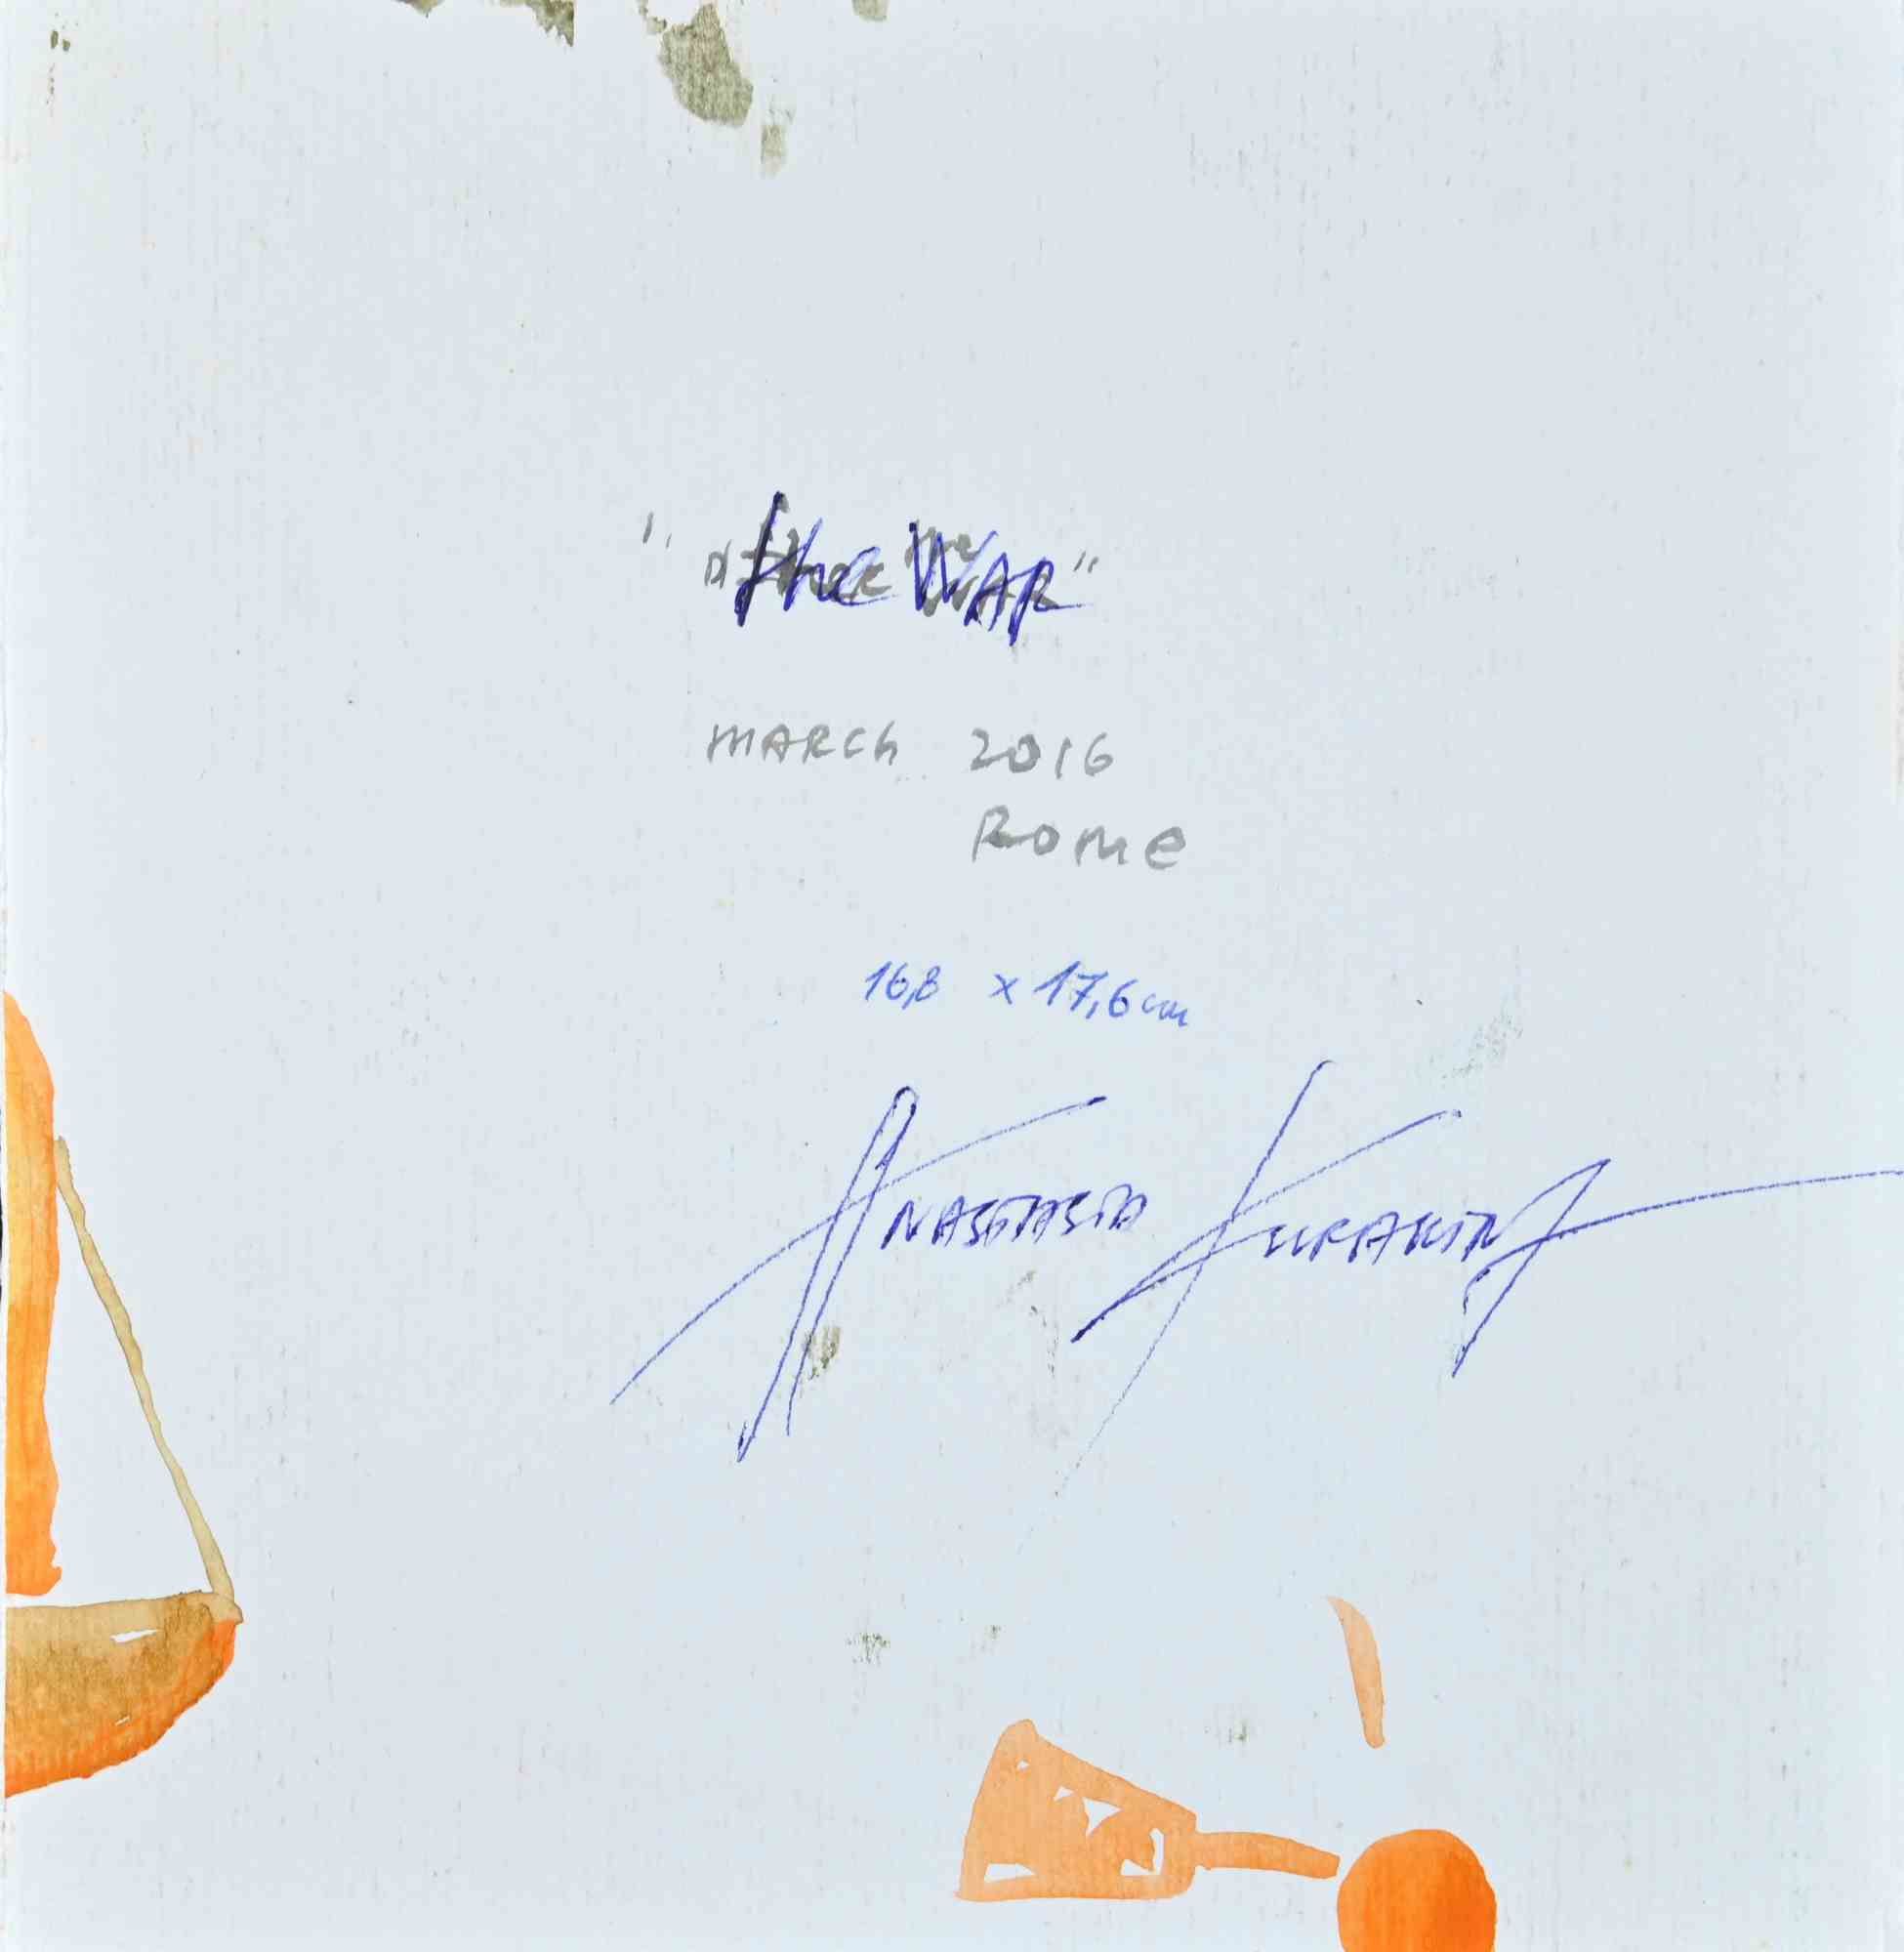 "the WAR"
MARCh 2016
Rome
16,8 x 17,6 cm
ANASTASIA KURAKINA